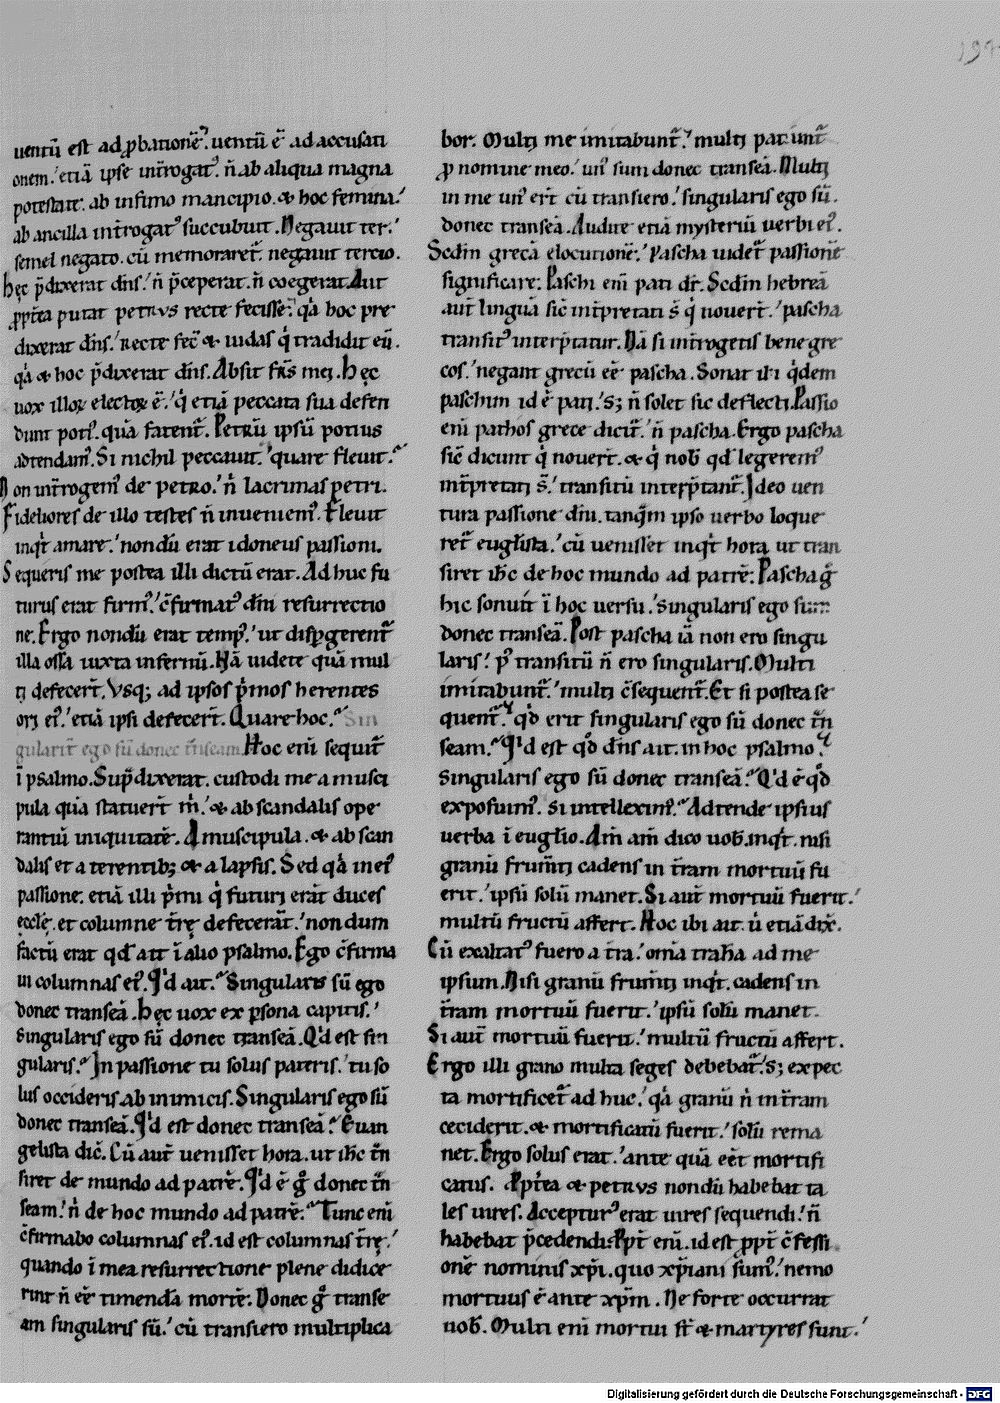 194
uentū est ad ꝓbationē. uentū ē ad accusati
onem. etiā ipse int̄rogat᷒. n̄ ab aliqua magna
potestate. ab infimo mancipio. & hoc femina.
ab ancilla int̄rogat᷒ succubuit. Negauit ter.
semel negato. cū memoraret᷒. negauit tercio.
hęc p̄dixerat dn̄s. n̄ p̄ceperat. n̄ coegerat. Aut
ꝓpt̄ea putat petrus recte fecisse. qͥa hoc pre
dixerat dn̄s. recte fec̄ & iudas qͥ tradidit eū.
qͥa & hoc p̄dixerat dn̄s. Absit fr̄s mei. hęc
uox illoꝝ electoꝝ ē. qͥ etiā peccata sua defen
dunt poti᷒. quā fatent᷒. Petrū ipsū potius
adtendam᷒. Si nichil peccauit. quare fleuit.
Non int̄rogem᷒ de petro. n̄ lacrimas petri.
Fideliores de illo testes n̄ inueniem᷒. Fleuit
inqͥt amare. nondū erat idoneus passioni.
Sequeris me postea illi dictū erat. Adhuc fu
turus erat firm᷒. c̄firmat᷒ dn̄i resurrectio
ne. Ergo nondū erat temp᷒. ut disꝑgerent᷒
illa ossa iuxta infernū. Nā uidete quā mul
ti defecer̄t. Vsq; ad ipsos pͥmos herentes
ori ei᷒. etiā ipsi defecer̄t. Quare hoc. Sin
gularit̄ ego sū donec tn̄seam. Hoc eni sequit᷒
ī psalmo. Sup̄dixerat. custodi me a musci
pula quā statuer̄t m̄. & ab scandalis ope
rantiū iniquitatē. A muscipula. & ab scan
dalis et a terentib; & a lapsis. Sed qͥa in ei᷒
passione. etiā illi pͥmi qͥ futuri erāt duces
ecclę. et columne t̄rę defecerāt. non dum
factū erat qd̄ ait ī alio psalmo. Ego c̄firma
ui columnas ei᷒. Qͥd ait. Singularis sū ego
donec transeā. hęc uox ex ꝑsona capitis.
Singularis ego sū donec transeā. Qͥd est sin
gularis. In passione tu solus pateris. tu so
lus occideris ab inimicis. Singularis ego sū
donec transeā. Qͥd est donec transeā. Euan
gelista dic̄. Cū aut̄ uenisset hora. ut ih̄c tn̄
siret de mundo ad patrē. Qͥd ē g̊ donec tn̄
seam. n̄ de hoc mundo ad patrē. Tunc eni
c̄firmabo columnas ei᷒. id est columnas t̄rę.
quando ī mea resurrectione plene didice
rint n̄ eē timendā mortē. Donec g̊ transe
am singularis sū. cū transiero multiplica
bor. Multi me imitabunt᷒. multi patiunt᷒
ꝓ nomine meo. un᷒ sum donec transeā. Multi
in me un᷒ er̄t cū transiero. singularis ego sū.
donec transeā. Audite etiā mysteriū uerbi ei᷒.
Scd̄m grecā elocutionē. Pascha uidet᷒ passionē
significare. Paschi eni pati dr̄. Scd̄m hebreā
aut̄ linguā sic̄ int̄pretati s̄ qͥ nouer̄t. pascha
transit᷒ interp̄tatur. Nā si int̄rogetis bene gre
cos. negant grecū eē pascha. Sonat ibi qͥdem
paschin id ē pati. s; n̄ solet sic deflecti. Passio
eni pathos grece dicit᷒. n̄ pascha. Ergo pascha
sic̄ dicunt qͥ nouer̄t. & qͥ nob̄ qd̄ legerem᷒
int̄pretati s̄. transitū interp̄tant᷒. Ideo uen
tura passione dn̄i. tanqͣm ipso uerbo loque
ret᷒ eugl̄ista. cū uenisset inqͥt hora ut tran
siret ih̄c de hoc mundo ad patrē. Pascha g̊
hic sonuit ī hoc uersu. Singularis ego sum
donec transeā. Post pascha iā non ero singu
laris. p᷒ transitū n̄ ero singularis. Multi
imitabunt᷒. multi c̄sequent᷒. Et si postea se
quent᷒. qͥd erit singularis ego sū donec tn̄
seam. Qͥd est qd̄ dn̄s ait. in hoc psalmo.
Singularis ego sū donec transeā. Qͥd ē qd̄
exposuim᷒. Si intellexim᷒. Adtende ipsius
uerba ī eugl̄io. Am̄ am̄ dico uob̄. inqͥt. nisi
granū frum̄ti cadens in t̄ram mortuū fu
erit. ipsū solū manet. Si aut̄ mortuū fuerit.
multū fructū affert. Hoc ibi ait. u̇ etiā dix̄.
Cū exaltat᷒ fuero a t̄ra. om̄a trah̄a ad me
ipsum. Nisi granū frum̄ti inqͥt. cadens in
t̄ram mortuū fuerit. ipsū solū manet.
Si aut̄ mortuū fuerit. multū fructū affert.
Ergo illi grano multa seges debebat᷒. s; expec
ta mortificet᷒ adhuc. qͥa granū n̄ in t̄ram
ceciderit. & mortificatū fuerit. solū rema
net. Ergo solus erat. ante quā eēt mortifi
catus. Ꝓpt̄ea & petrus nondū habebat ta
les uires. Acceptur᷒ erat uires sequendi. n̄
habebat p̄cedendi. Ꝓpt̄ eni. id est ꝓpt̄ c̄fessi
onē nominis xp̄i. quo xp̄iani sum᷒. nemo
mortuus ē ante xp̄m. Ne forte occurrat
uob̄. Multi eni mortui st̄ & martyres sunt.
Digitalisierung gefördert durch die Deutsche Forschungsgemeinschaft - DFG